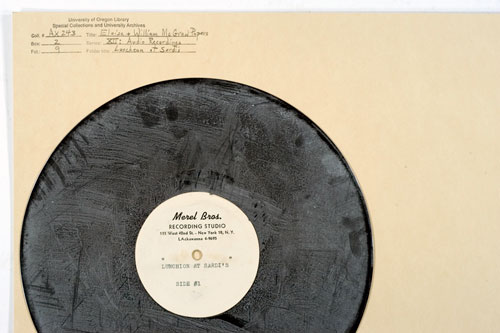 University of Oregon Library
Special Collections and University Archives
Coll # Ax 243 Title: Eloise & William McGraw Papers
Box: 2 Series: XII: Audio Recordings
Fol: 9 Folder title: Luncheon at Sardis
Merel Bros.
RECORDING STUDIO
West 42nd St. - New York 18, N. Y.
LAckawanna 4-9695
" LUNCHION AT SARDI'S "
SIDE #1